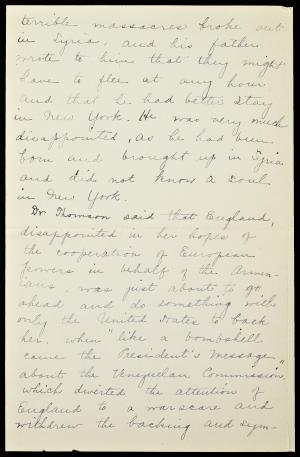 terrible massacres broke out
in Syria, and his father
wrote to him that they might
have to flee at any hour
and that he had better stay
in New York. He was very much
disappointed, as he had been
born and brought up in Syria
and did not know a soul
in New York.
Dr. Thomson said that England,
disappointed in her hopes of
the cooperation of European
powers in behalf of the Armen-
ians, was just about to go
ahead and do something with
only the United States to back
her, when "like a bombshell
came the President's message"
about the Venezuelan Commission,
which diverted the attention of
England to a warscare and
withdrew the backing and sym-